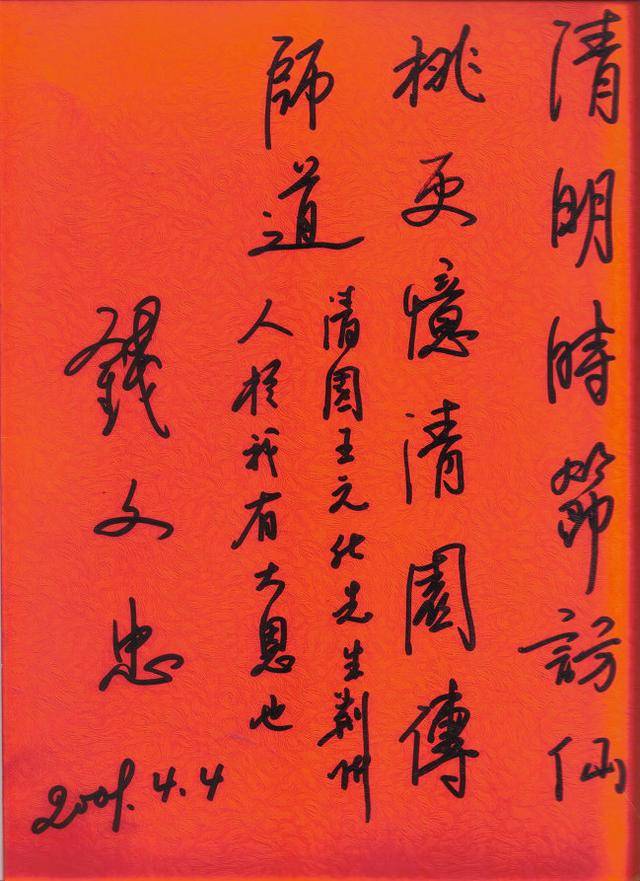 清明時節訪仙
桃更憶清園傳
師道
清園王元化先生荊州
人於我有大恩也
錢文忠
2009.4.4